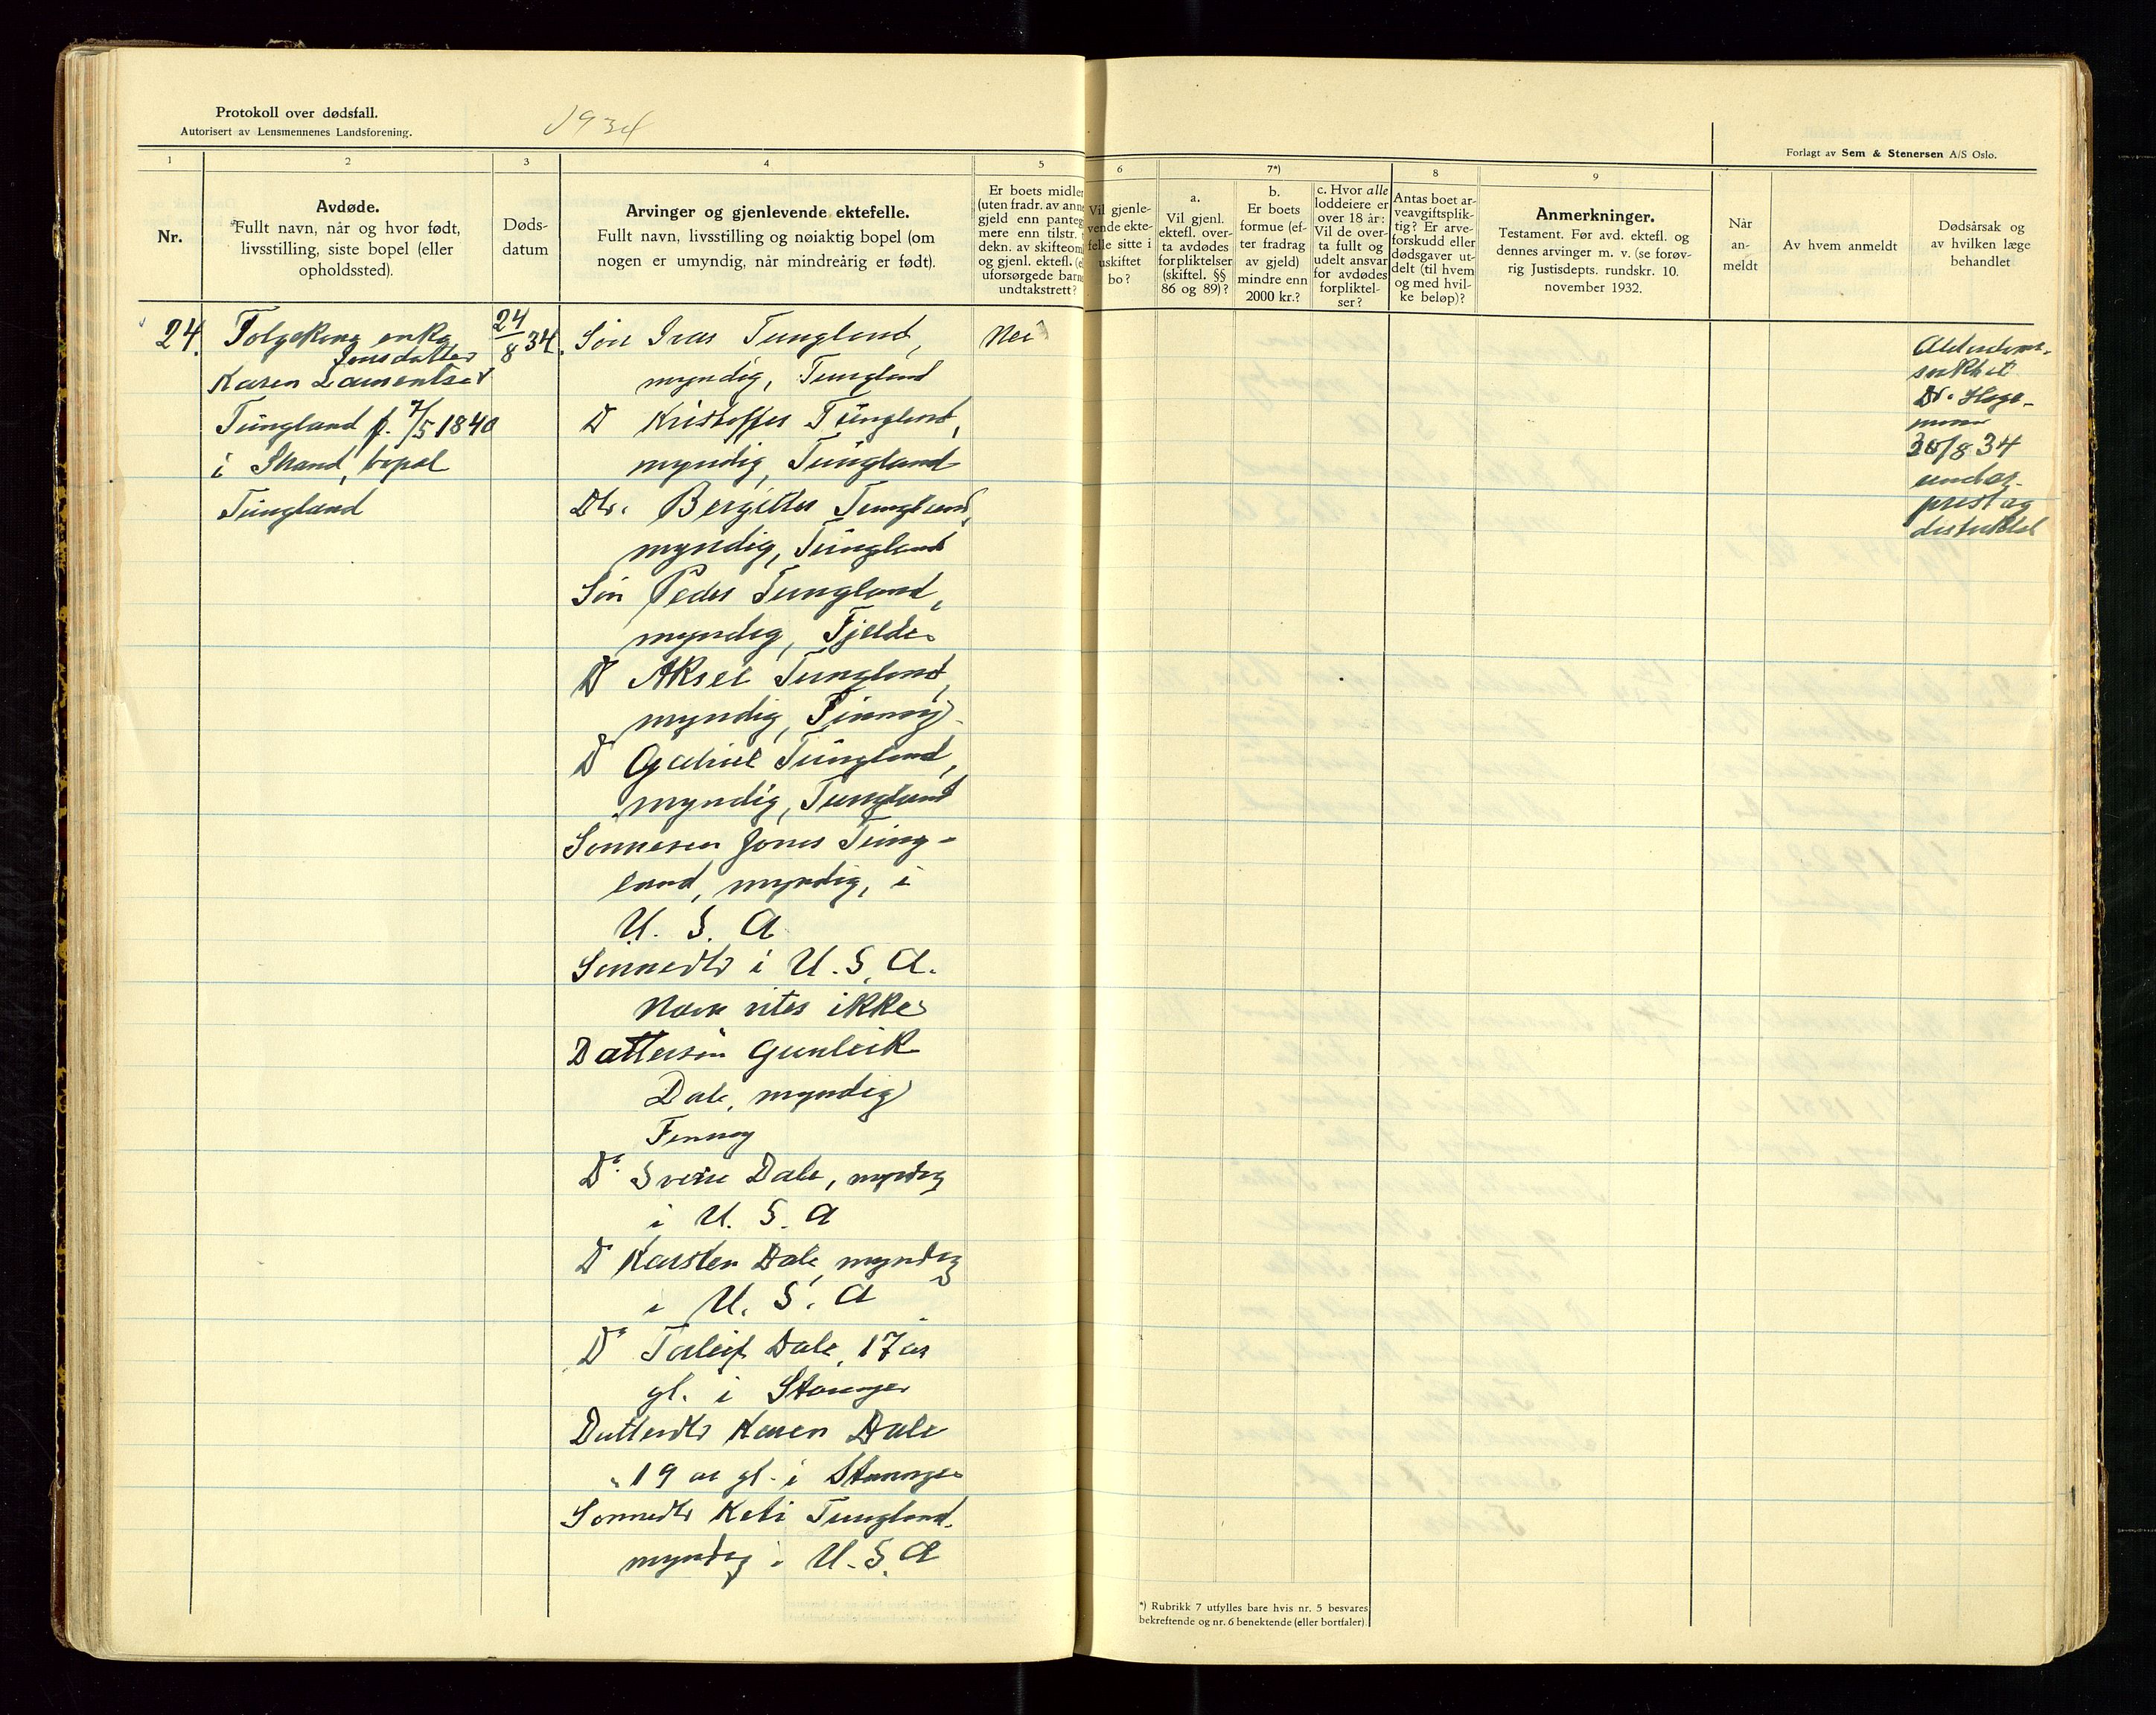 Protokoll over dødsfall.
Autorisert av Lensmennenes Landsforening.
1934
Forlagt av Sem & Stenersen A/S Oslo.
1
2
3
4
5
6
7*)
8
9
Nr.
Avdøde.
Fullt navn, når og hvor født,
livsstilling, siste bopel (eller
opholdssted).
Døds-
datum
Arvinger og gjenlevende ektefelle.
Fullt navn, livsstilling og nøiaktig bopel (om
nogen er umyndig, når mindreårig er født).
Er boets midler
(uten fradr. av anne
gjeld enn panteg
mere enn tilstr. t
dekn. av skifteom
og gjenl. ektefl. (e
uforsørgede barn
undtakstrett?
Vil gjenle-
vende ekte-
felle sitte i
uskiftet
bo?
a.
Vil gjenl.
ektefl. over-
ta avdødes
forpliktelser
(skiftel. §§
86 og 89)?
b.
Er boets
formue (ef-
ter fradrag
av gjeld)
mindre enn
2000 kr.?
c. Hvor alle
loddeiere er
over 18 år:
Vil de over-
ta fullt og
udelt ansvar
for avdødes
forpliktel-
ser?
Antas boet ar-
veavgiftsplik-
tig? Er arve-
forskudd eller
dødsgaver ut-
delt (til hvem
og med hvil-
ke beløp)?
Anmerkninger.
Testament. Før avd. ektefl. og
dennes arvinger m. v. (se forøv-
rig Justisdepts. rundskr. 10.
november 1932.
Når
an-
meldt
Av hvem anmeldt
Dødsårsak og
av hvilken læge
behandlet
24.
Folgekona enke
Jonsdatter
Karen
Tungland f. 7/5 1840
i Strand, bopel
Tungland
24/8 34.
Søn Ivar Tungland,
myndig, Tungland
D Kristoffer Tungland,
myndig, Tungland
Dtr. Bergitte Tungland,
myndig, Tungland
Søn Peder Tungland,
myndig, Fjelde
D Aksel Tungland,
myndig, Finnøy
D Gabriel Tungland,
myndig, Tungland
Sønnesøn Jonas Tung-
land, myndig, i
U. S. A
Sønnedtr i U. S. A.
Navn vites ikke
Dattersøn Gunleik
Dale, myndig
Finnøy
Do Sverre Dale, myndig
i U. S. A
D Karsten Dale, myndig
i U. S. A
Do Torleif Dale, 17 år
gl. i Stavanger
Datterdtr Karen Dale
19 år gl. i Stavanger
Sønnedtr Tungland.
myndig i U. S. A
Nei
Alderdoms-
svakhet
Dr. Hage-
30/8 34
underr.
prest og
*) Rubrikk 7 utfylles bare hvis nr. 5 besvares
bekreftende og nr. 6 benektende (eller bortfaler)